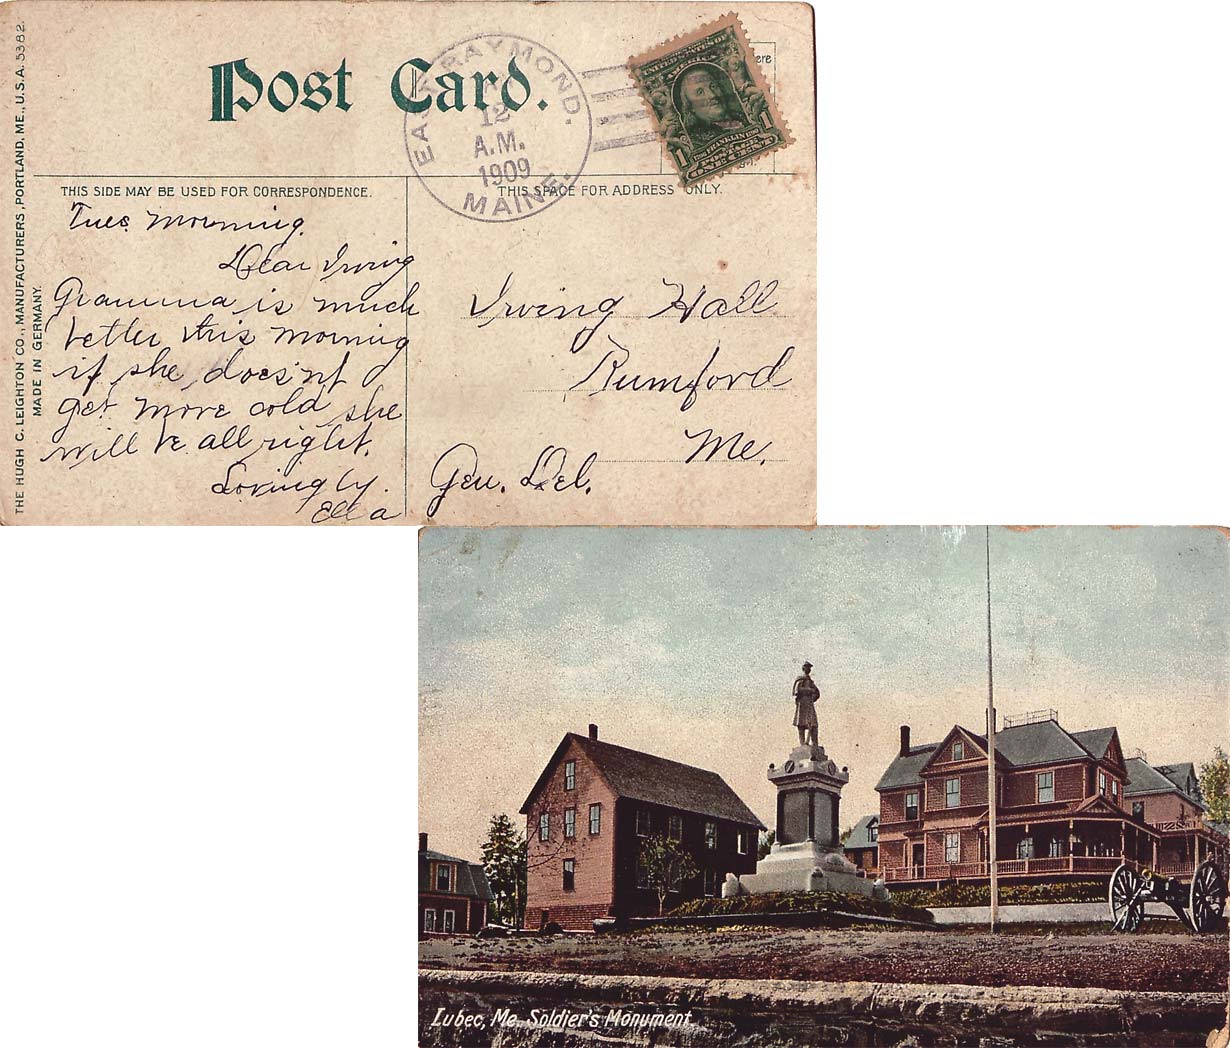 THE HUGH C. LEIGHTON CO., MANUFACTURERS, PORTLAND, ME., U.S.A. 5382.
MADE IN GERMANY.
Post Card.
EAST RAYMOND.
12
A.M.
1909
MAINE.
UNITED STATES OF
AMERICA
FRANKLIN
1 POSTAGE 1
ONE CENT
ere
THIS SIDE MAY BE USED FOR CORRESPONDENCE.
THIS SPACE FOR ADDRESS ONLY.
Tues. Morning.
Dear Irving
Gramma is much
better this morning
if she does'nt
get more cold she
will be all right.
Lovingly.
Ella
Irving Hall
Rumford
Me.
Gen. Del.
Lubec, Me. Soldier's Monument.